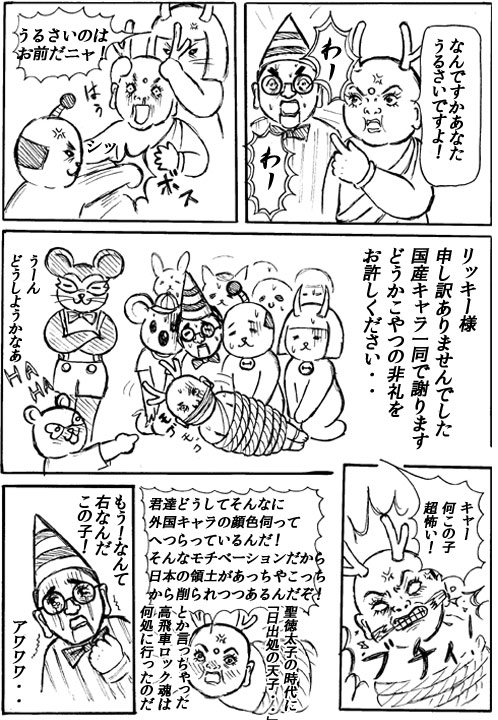 なんですかあなた
うるさいですよ！
わー
わー
うるさいのは
お前だニャ！
はぅ
シッ
ボス
リッキー様
申し訳ありませんでした
国産キャラ一同で謝ります
どうかこやつの非礼を
お許しください・・
うーん
どうしようかなあ
HA
HA
モゴモゴ
キャー
何この子
超怖い！
ブチィ
君達どうしてそんなに
外国キャラの顔色伺って
へつらっているんだ！
そんなモチベーションだから
日本の領土があっちやこっち
から削られつつあるんだぞ！
聖徳太子の時代に
「日出処の天子・・」
とか言っちゃった
高飛車ロック魂は
何処に行ったのだ
もう！なんて
右なんだ
この子！
アワワワ・・